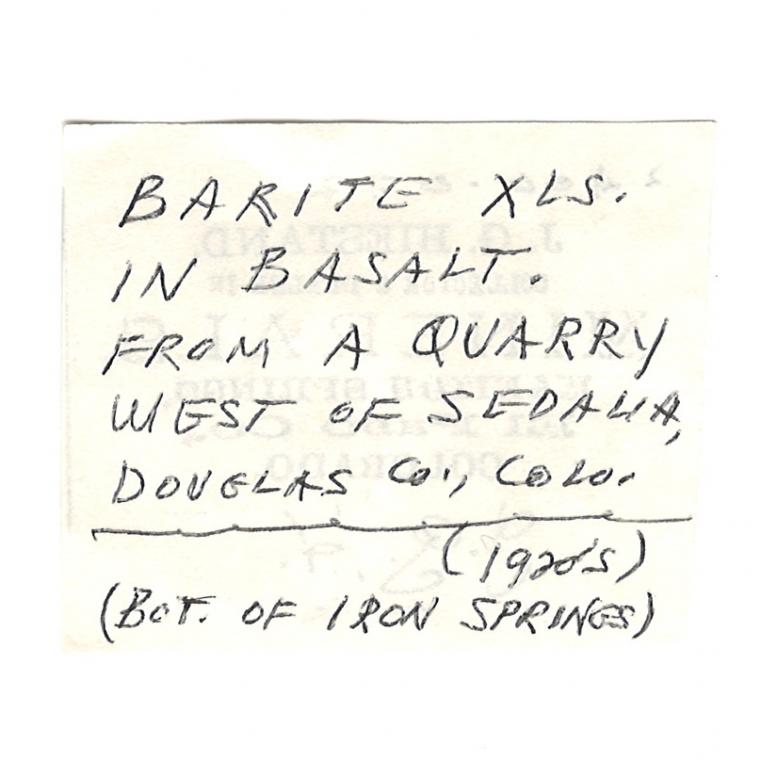 BARITE XLS.
IN BASALT.
FROM A QUARRY
WEST OF SEDALIA,
DOUGLAS CO., COLO.
(1920'S)
(BOT. OF IRON SPRINGS)
J. G. HIESTAND
COLORADO